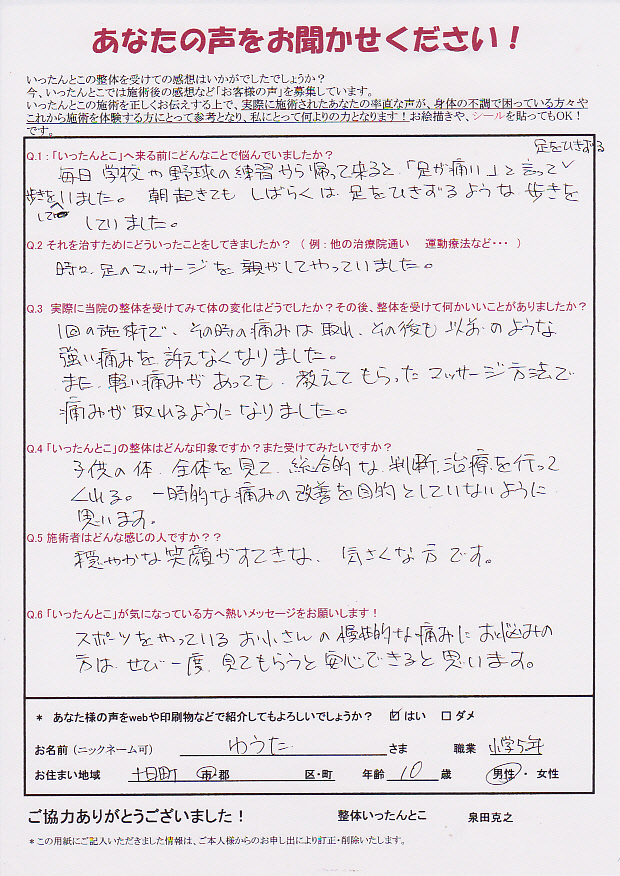 あなたの声をお聞かせください！
いったんとこの整体を受けての感想はいかがでしたでしょうか？
今、いったんとこでは施術後の感想など「お客様の声」を募集しています。
いったんとこの施術を正しくお伝えする上で、実際に施術されたあなたの率直な声が、身体の不調で困っている方々や
これから施術を体験する方にとって参考となり、私にとって何よりの力となります！お絵描きや、シールを貼ってもOK！
です。
Q.1：「いったんとこ」へ来る前にどんなことで悩んでいましたか？
足をひきずる
毎日学校や野球の練習から帰って来ると、「足が痛い」と言って
歩きをしていました。朝起きてもしばらくは足をひきずるような歩きを
していました。
Q.2 それを治すためにどういったことをしてきましたか？（例：他の治療院通い　運動療法など・・・）
時々、足のマッサージを親がしてやっていました。
Q.3 実際に当院の整体を受けてみて体の変化はどうでしたか？その後、整体を受けて何かいいことがありましたか？
1回の施術で、その時の痛みは取れ、その後も以前のような
強い痛みを訴えなくなりました。
また、軽い痛みがあっても、教えてもらったマッサージ方法で
痛みが取れるようになりました。
Q.4 「いったんとこ」の整体はどんな印象ですか？また受けてみたいですか？
子供の体、全体を見て、総合的な判断、治療を行って
くれる。一時的な痛みの改善を目的としていないように
思います。
Q.5 施術者はどんな感じの人ですか？？
穏やかな笑顔がすてきな、気さくな方です。
Q.6 「いったんとこ」が気になっている方へ熱いメッセージをお願いします！
スポーツをやっているお小さんの慢性的な痛みにお悩みの
方は、ぜひ一度、見てもらうと安心できると思います。
＊ あなた様の声をwebや印刷物などで紹介してもよろしいでしょうか？ ☑はい □ダメ
お名前（ニックネーム可） ゆうた さま 職業 小学5年
お住まい地域 十日町 市・郡 区・町 年齢 10 歳 男性・女性
ご協力ありがとうございました！ 整体いったんとこ 泉田克之
＊この用紙にご記入いただきました情報は、ご本人様からのお申し出により訂正・削除いたします。